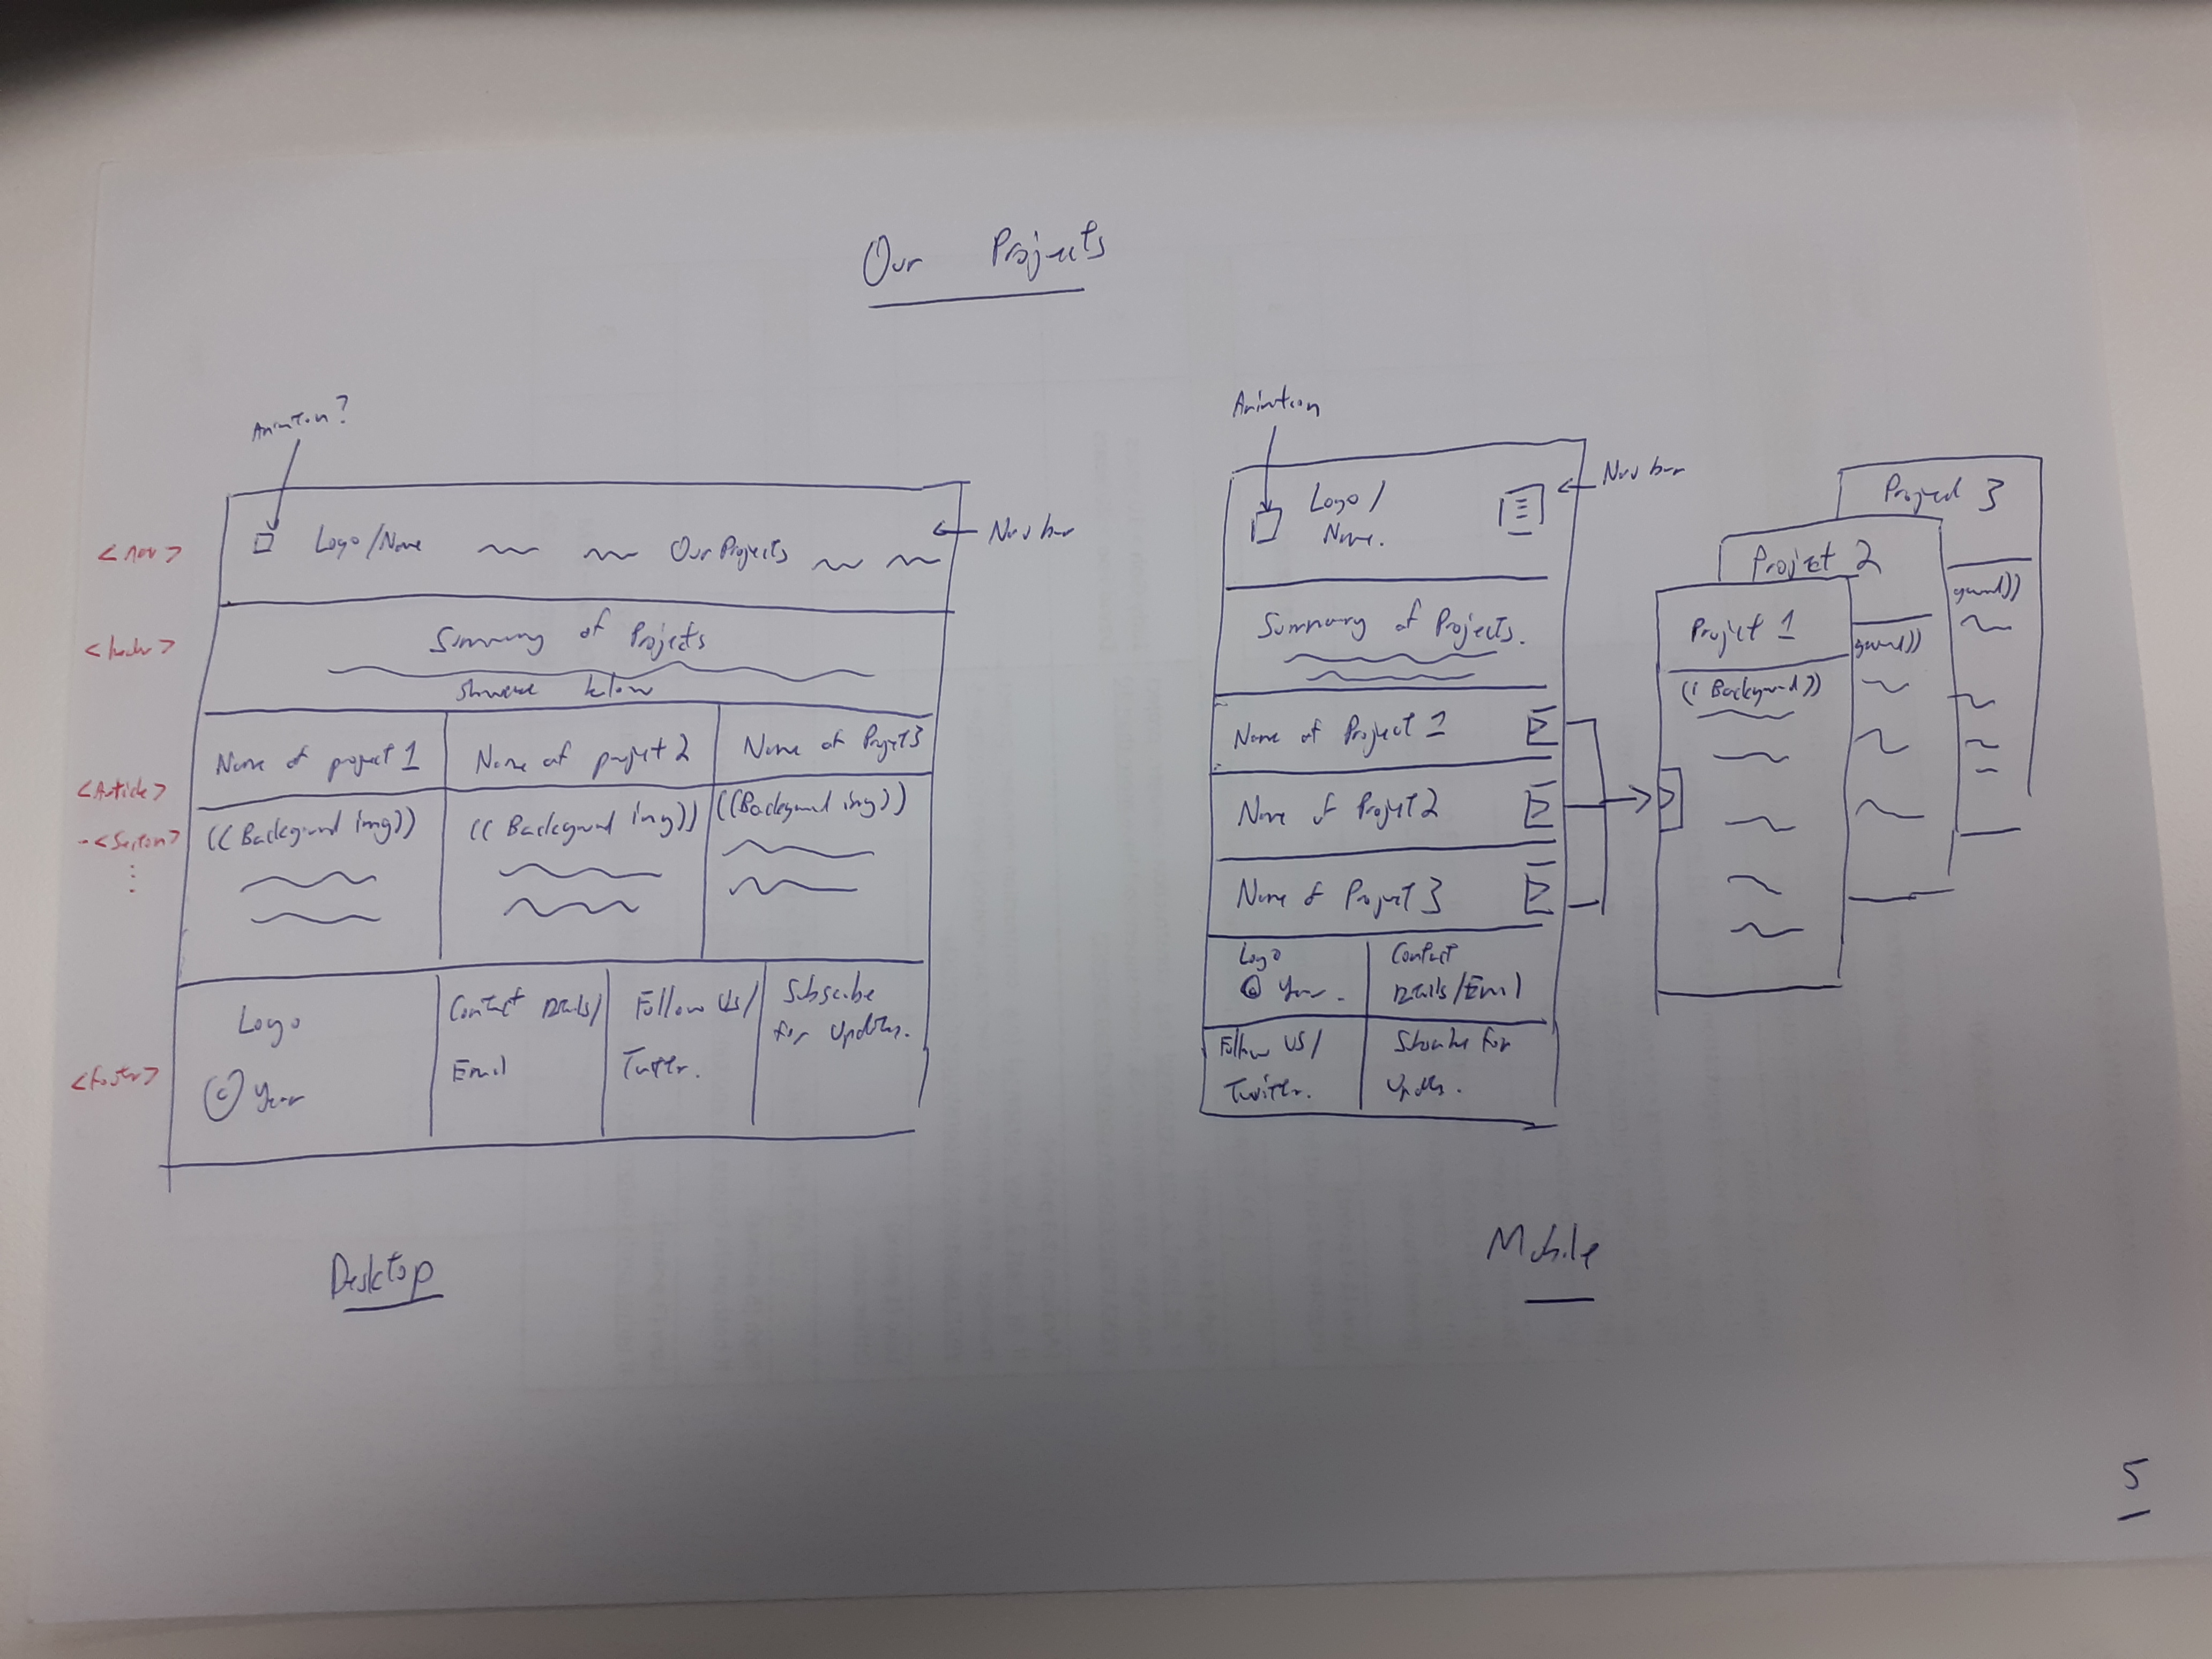 Our Projects
Animation?
<nav>
Logo/Name
Our Projects
Nav bar
<header>
Summary of Projects
Showcase below
Name of project 1
Name of project 2
Name of Project 3
<Article>
-<Section>
((Background img))
((Background img))
((Background img))
<footer>
Logo
© Year
Contact Details/
Email
Follow Us/
Twitter.
Subscribe
for updates.
Desktop
Animation
Logo/
Name.
Nav bar
Summary of Projects.
Name of Project 1
Name of Project 2
Name of Project 3
Logo
© Year.
Contact
Details/Email
Follow US/
Twitter.
Subscribe for
updates.
Project 1
((Background))
Project 2
ground))
Project 3
ground))
Mobile
5